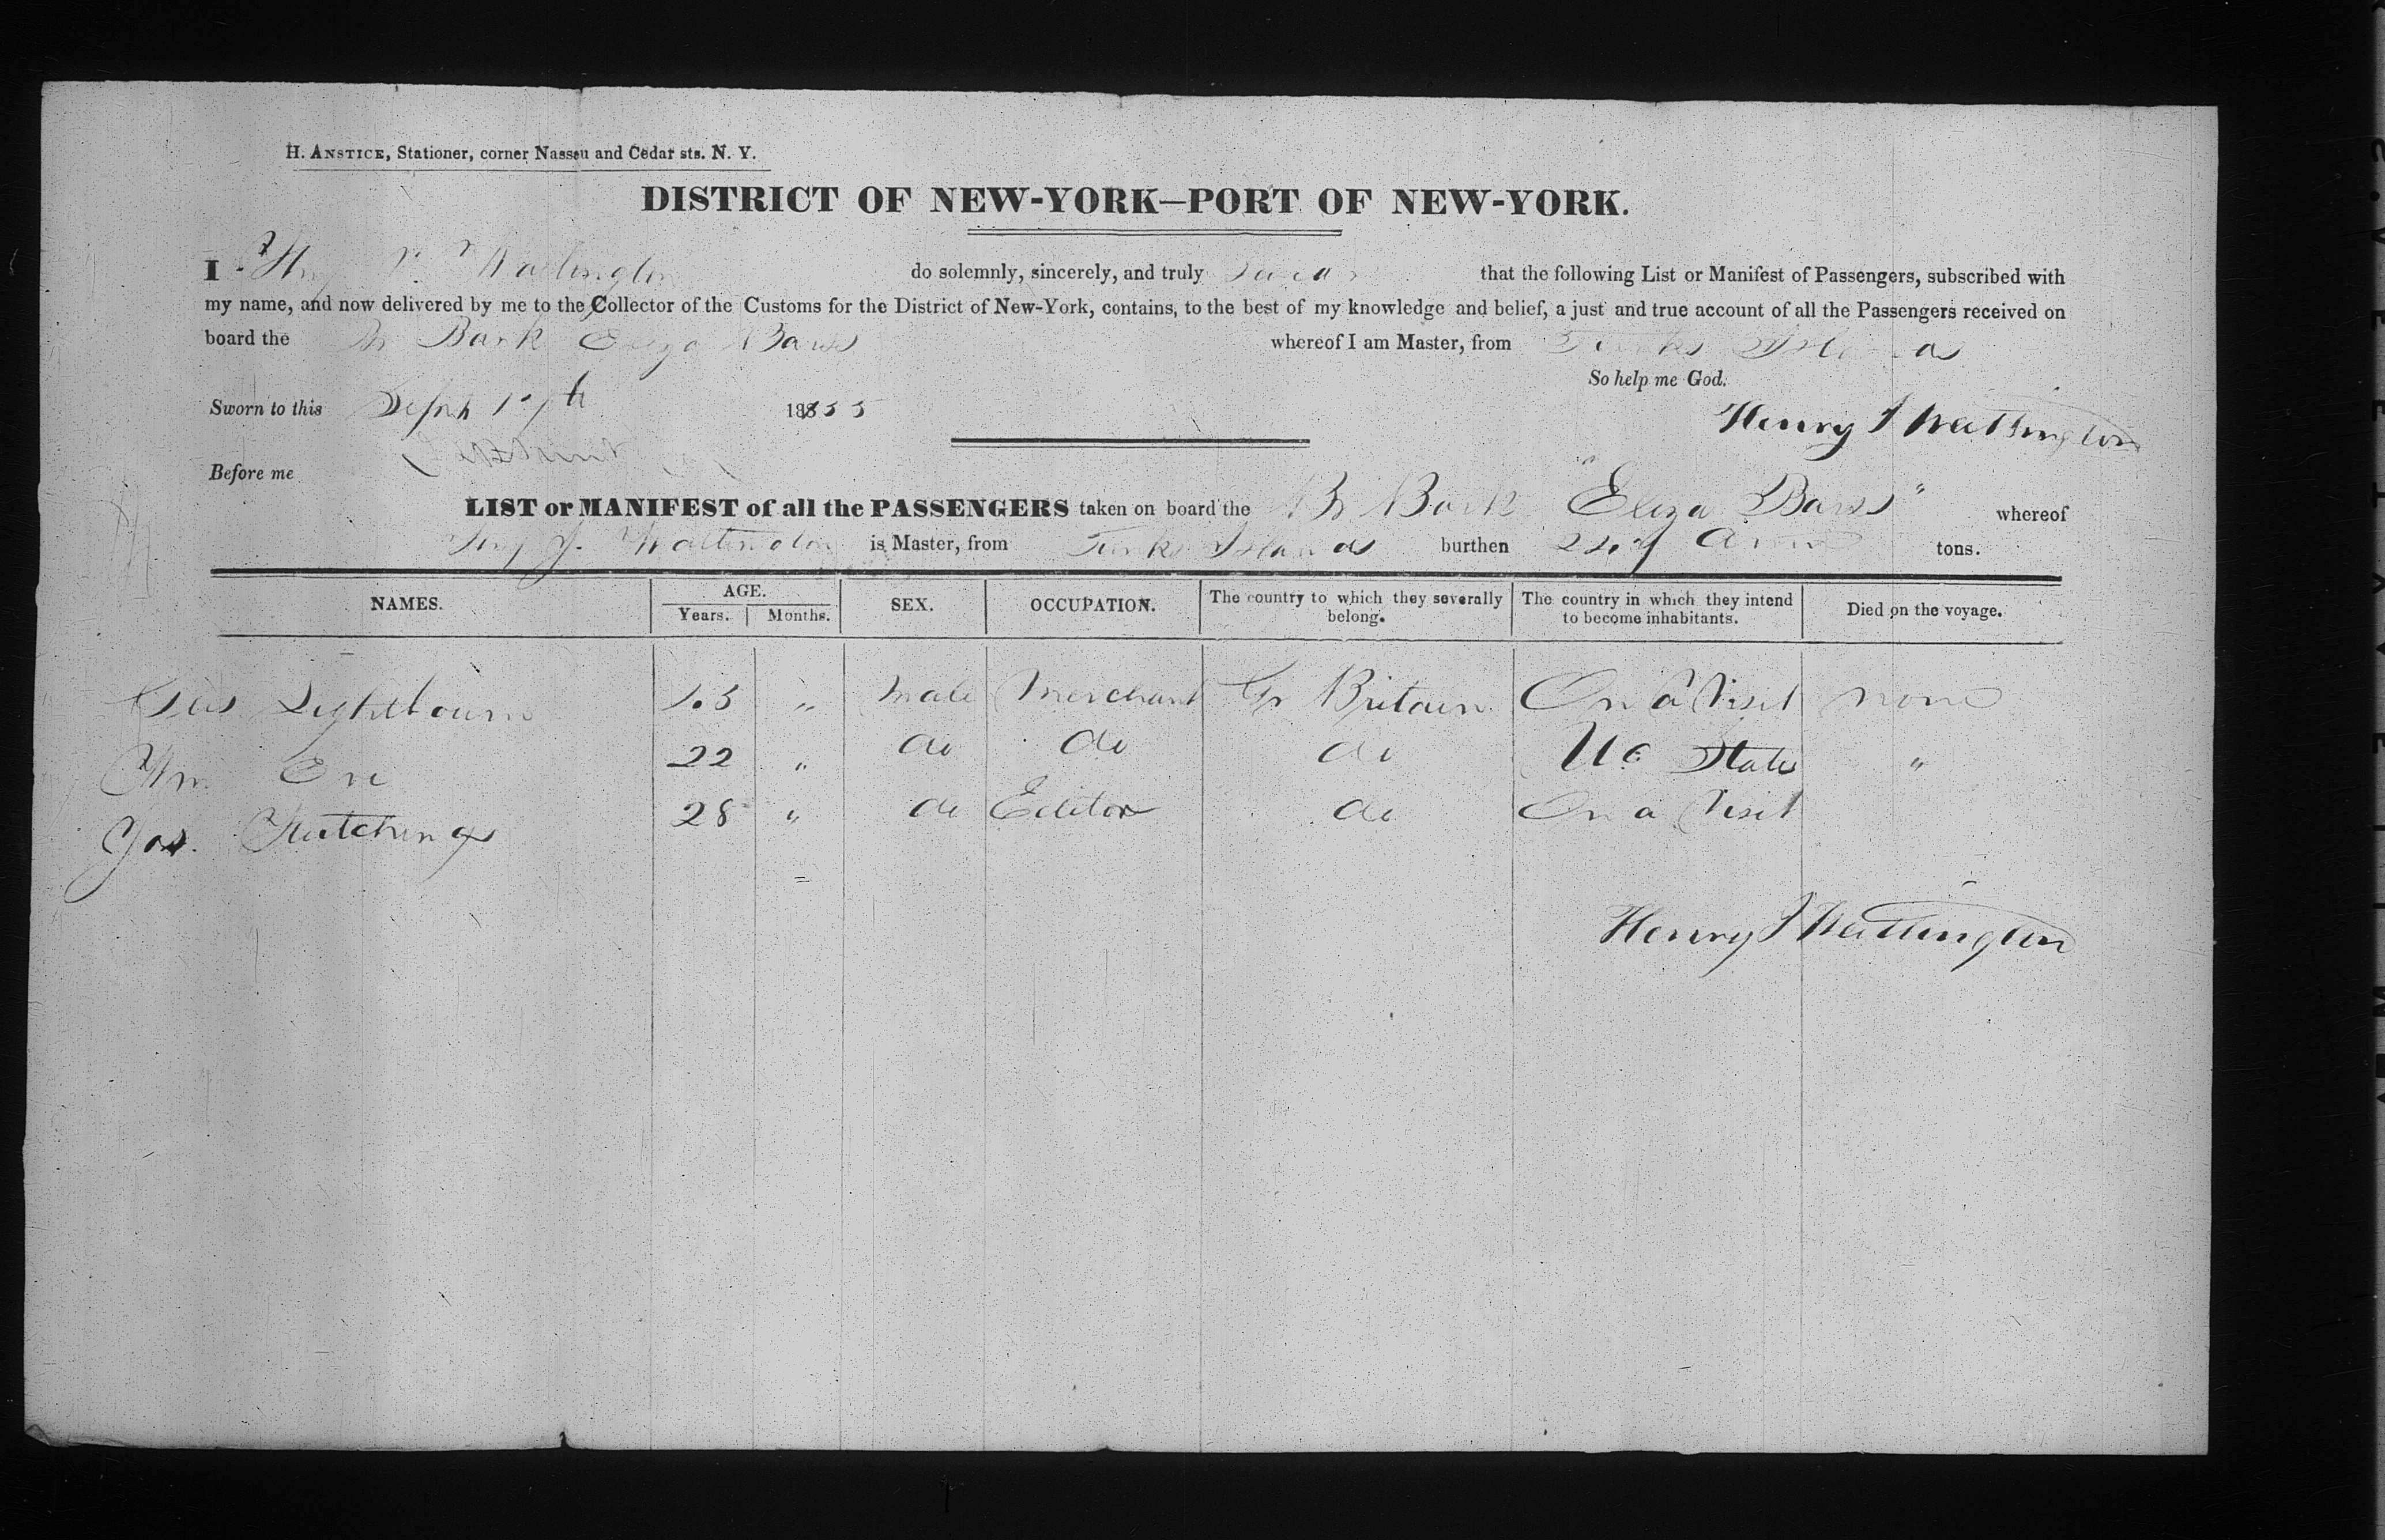 H. ANSTICE, Stationer, corner Nassau and Cedar sts. N. Y.
DISTRICT OF NEW-YORK—PORT OF NEW-YORK.
I Watlington do solemnly, sincerely, and truly swear that the following List or Manifest of Passengers, subscribed with
my name, and now delivered by me to the Collector of the Customs for the District of New-York, contains, to the best of my knowledge and belief, a just and true account of all the Passengers received on
board the Br Bark Eliza Barss whereof I am Master, from Turks Islands
So help me God.
Sworn to this Sept 1855
Henry J Watlington
Before me
LIST or MANIFEST of all the PASSENGERS taken on board the Br Bark "Eliza Barss" whereof
J. Watlington is Master, from Turks Islands burthen tons.
NAMES. AGE. SEX. OCCUPATION. The country to which they severally belong. The country in which they intend to become inhabitants. Died on the voyage.
Years. Months.
Lightbourn " male Merchant Gr Britain On a Visit none
Wm. 22 " do do do States "
Jas. Hutchings 28 " do Editor do On a Visit
Henry J Watlington